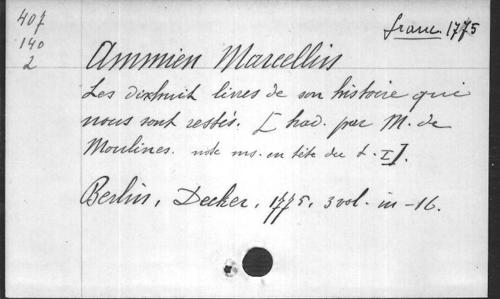 407
140
2
franc 1775
Ammien Marcellin
Les dixhuit livres de son histoire qui
nous sont restés. [trad. par M. de
Moulines. note ms. en tête du t. I].
Berlin, Decker, 1775, 3 vol. in-16.